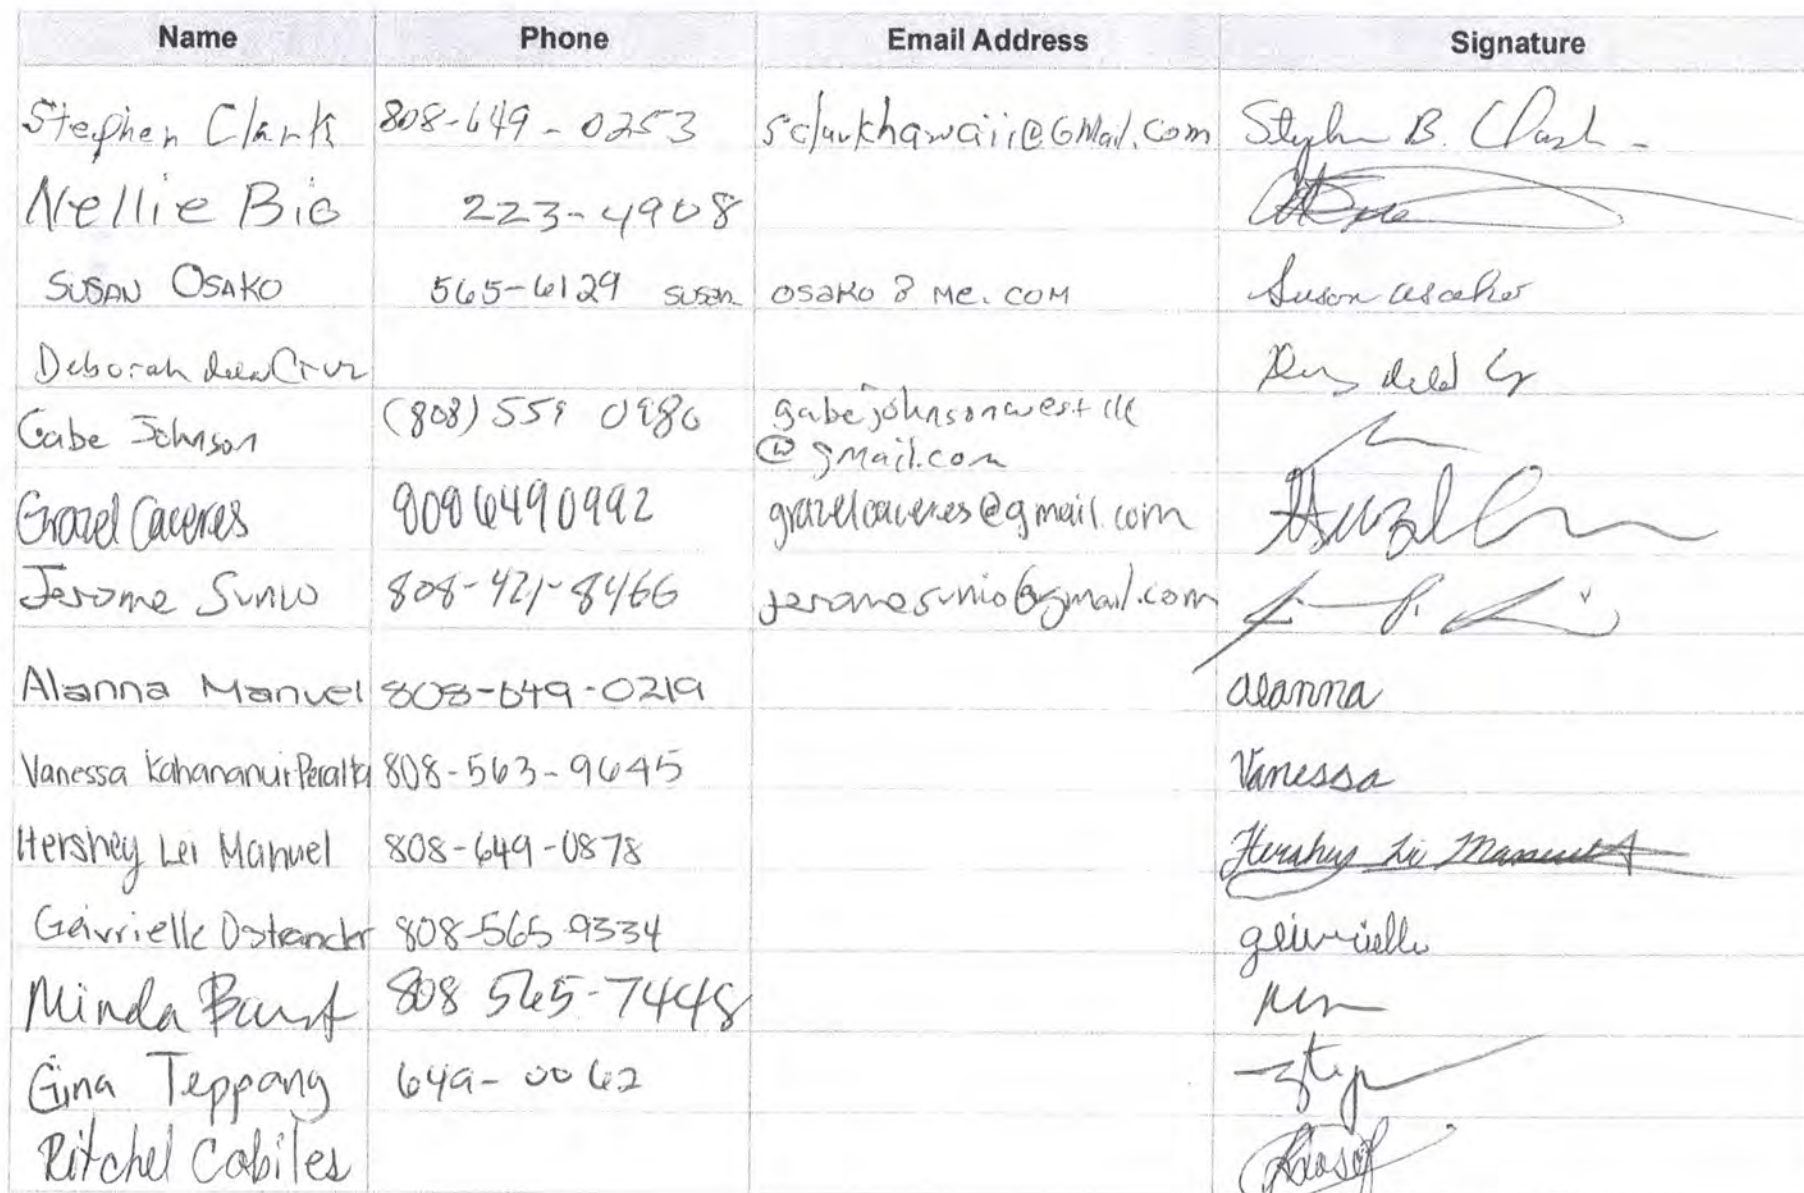 Name Phone Email Address Signature
Stephen Clark 808-649-0253 sclarkhawaii@GMail.com Stephen B. Clark
Nellie Bio 223-4908
SUSAN OSAKO 565-6129 susan osako @ me.com Susan Osako
Deborah dela Cruz
Gabe Johnson (808) 559 0980 gabejohnsonwest
@gmail.com
Grazel Caceres 8086490992 grazelcaceres@gmail.com
Jerome Sunio 808-421-8466 jeromesunio@gmail.com
Alanna Manuel 808-649-0219 alanna
Vanessa Kahananui Peralta 808-563-9645 Vanessa
Hershey Lei Manuel 808-649-0878 Hershey Lei Manuel
Geivrielle Ostrander 808-565-9334 geivrielle
Minda 808 565-7448
Gina Teppang 649-0062
Ritchel Cabiles